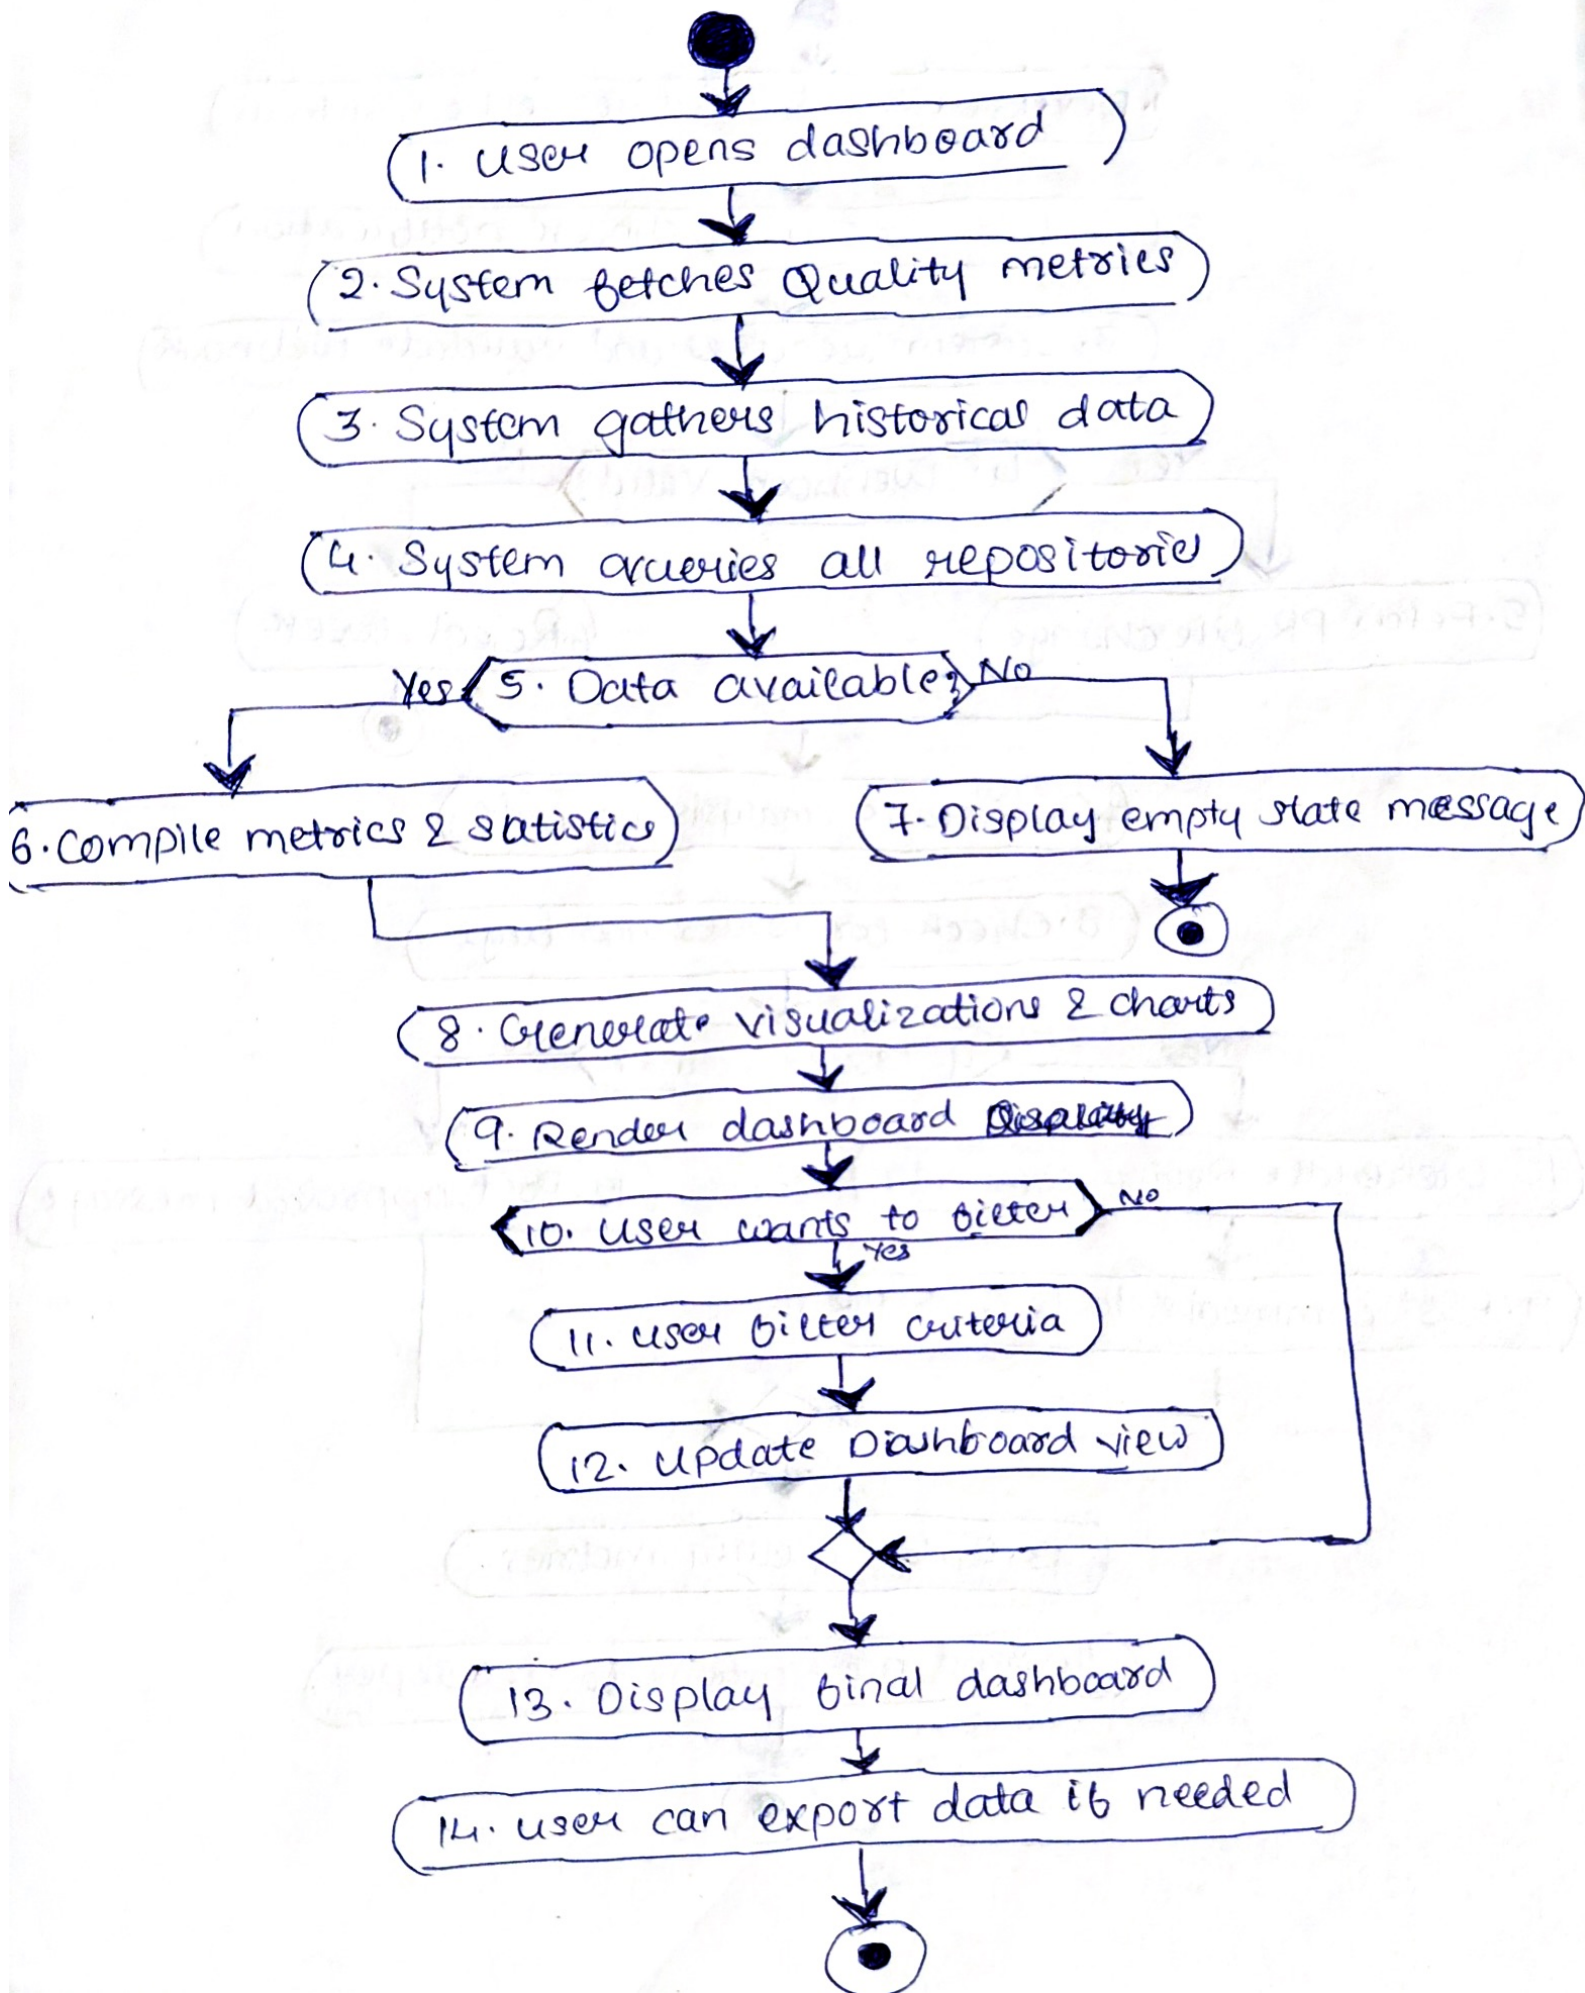 1. User opens dashboard
2. System fetches Quality metrics
3. System gathers historical data
4. System queries all repositories
Yes
5. Data available?
No
6. Compile metrics & statistics
7. Display empty state message
8. Generate visualizations & charts
9. Render dashboard
10. User wants to filter
No
Yes
11. User filter criteria
12. Update Dashboard view
13. Display final dashboard
14. User can export data if needed